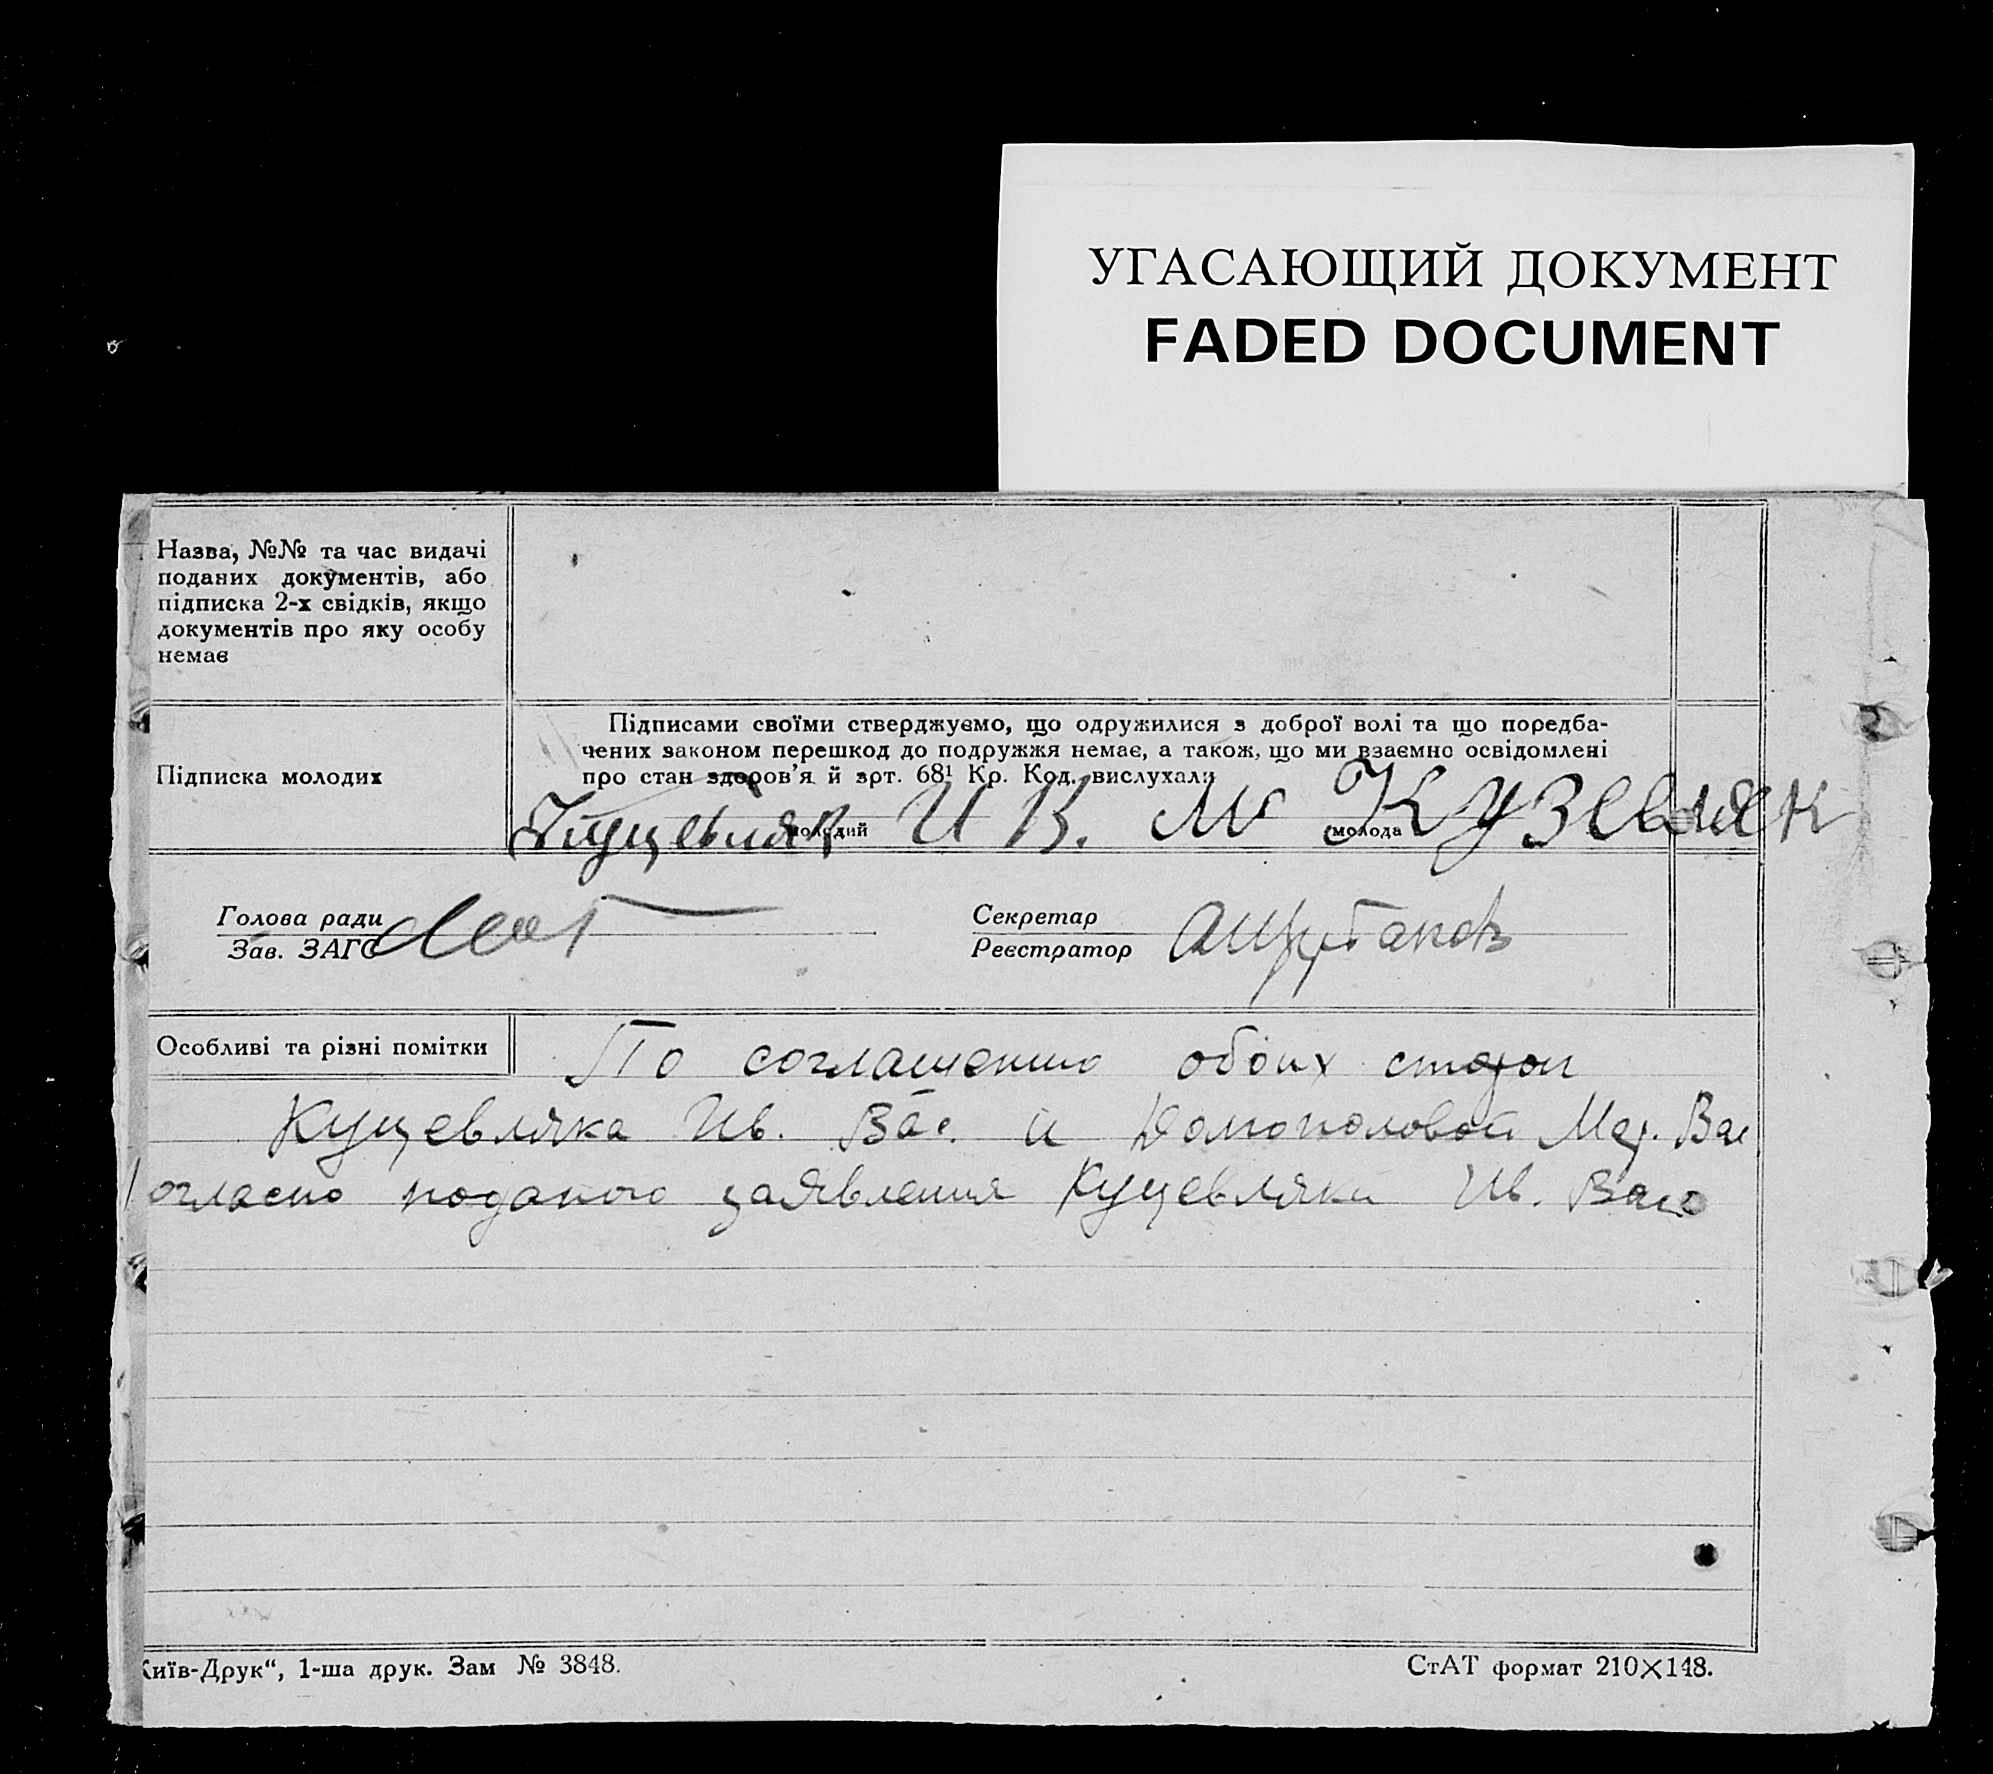 УГАСАЮЩИЙ ДОКУМЕНТ
FADED DOCUMENT
Назва, №№ та час видачі
поданих документів, або
підписка 2-х свідків, якщо
документів про яку особу
немає
Підписка молодих
Підписами своїми стверджуємо, що одружилися з доброї волі та що поредба-
чених законом перешкод до подружжя немає, а також, що ми взаємно освідомлені
про стан здоров'я й зрт. 68¹ Кр. Код. вислухали
Куцевляк И В. М Кузевляк
молодий молода
Голова ради
Зав. ЗАГС
Секретар
Реєстратор
Особливі та різні помітки
По соглашению обоих сторон
Куцевляка Ив. Вас. и Домополовой Мар. Вас
огласно поданого заявления Куцевляка Ив. Вас
Київ-Друк“, 1-ша друк. Зам № 3848.
СтАТ формат 210×148.